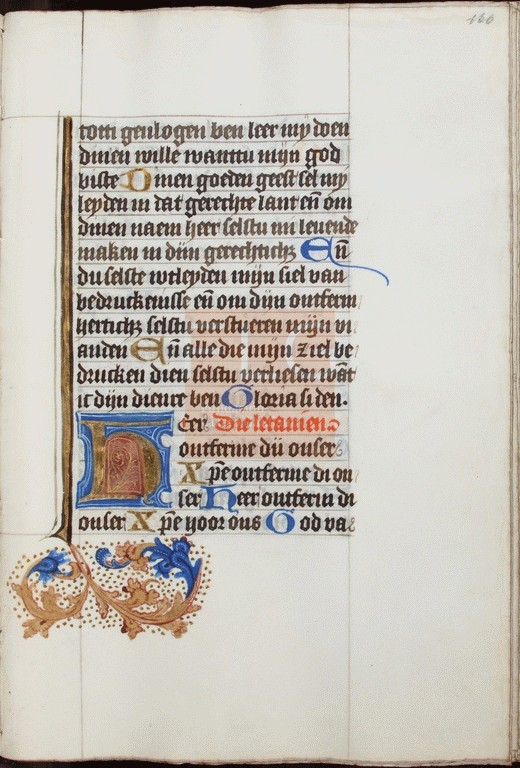 166
totti gevlogen ben leer my doen
dinen wille wanttu mijn god
biste Dinen goeden geest sel my
leyden in dat gerechte lant eñ om
dinen naem heer selstu mi leuende
maken in dijn gerechticheꝫ Eñ
du selste wtleyden mijn siel van
bedruckenisse eñ om dijn ontferm
herticheꝫ selstu verstueren mijn vi
anden Eñ alle die mijn ziel be
drucken dien selstu verliesen wāt
ic dijn dienre ben Gloria si den.
Heer Die letanien
ontferme dij onser
Xp̄e ontferme di on
ser Heer ontferm di
onser Xp̄e hoor ons God va